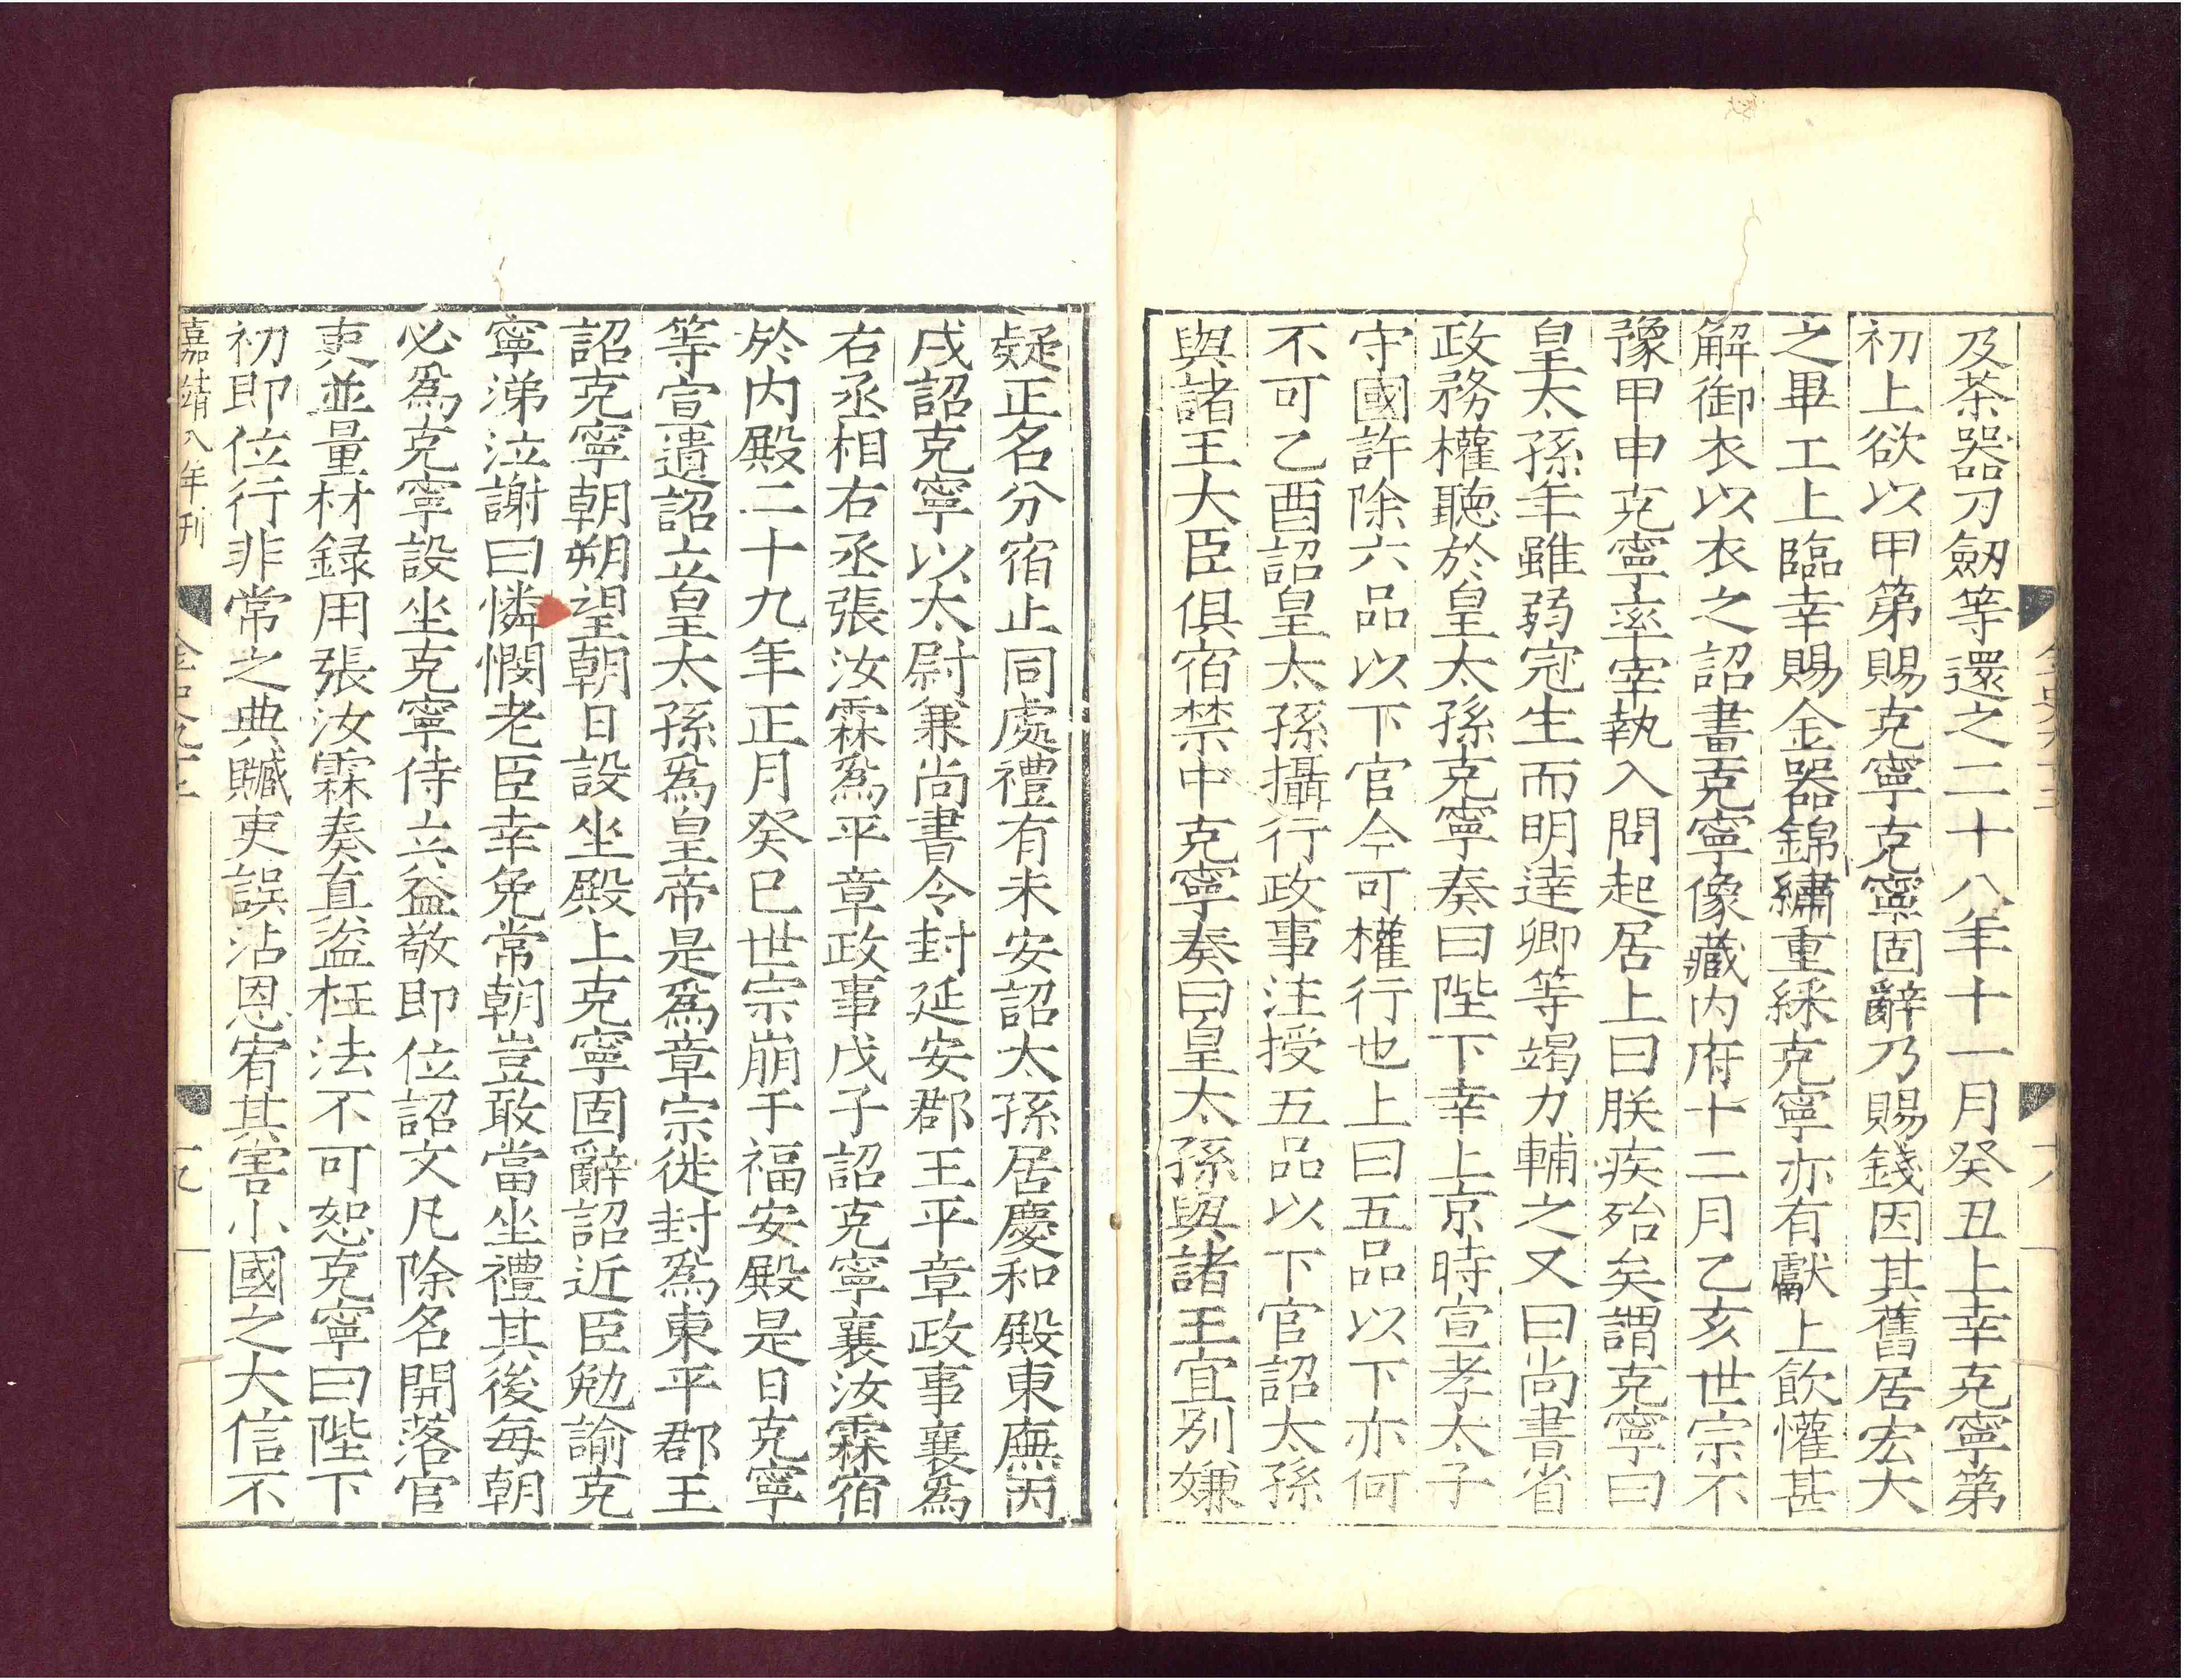 及茶器刀劔等還之二十八年十一月癸丑上幸克寧第
初上欲以甲第賜克寧克寧固辭乃賜錢因其舊居宏大
之畢工上臨幸賜金器錦繡重綵克寧亦有獻上飲懽甚
解御衣以衣之詔畫克寧像藏内府十二月乙亥世宗不
豫甲申克寧率宰執入問起居上曰朕疾殆矣謂克寧曰
皇太孫年雖弱冠生而明達卿等竭力輔之又曰尚書省
政務權聽於皇太孫克寧奏曰陛下幸上京時宣孝太子
守國許除六品以下官今可權行也上曰五品以下亦何
不可乙酉詔皇太孫攝行政事注授五品以下官詔太孫
與諸王大臣俱宿禁中克寧奏曰皇太孫與諸王宜別嫌
疑正名分宿止同處禮有未安詔太孫居慶和殿東廡丙
戌詔克寧以太尉兼尚書令封延安郡王平章政事襄爲
右丞相右丞張汝霖爲平章政事戊子詔克寧襄汝霖宿
於内殿二十九年正月癸巳世宗崩于福安殿是日克寧
等宣遺詔立皇太孫爲皇帝是爲章宗徙封爲東平郡王
詔克寧朝朔望朝日設坐殿上克寧固辭詔近臣勉諭克
寧涕泣謝曰憐憫老臣幸免常朝豈敢當坐禮其後每朝
必爲克寧設坐克寧侍立益敬即位詔文凡除名開落官
吏並量材録用張汝霖奏真盗枉法不可恕克寧曰陛下
初即位行非常之典贓吏誤沾恩宥其害小國之大信不
嘉靖八年刊